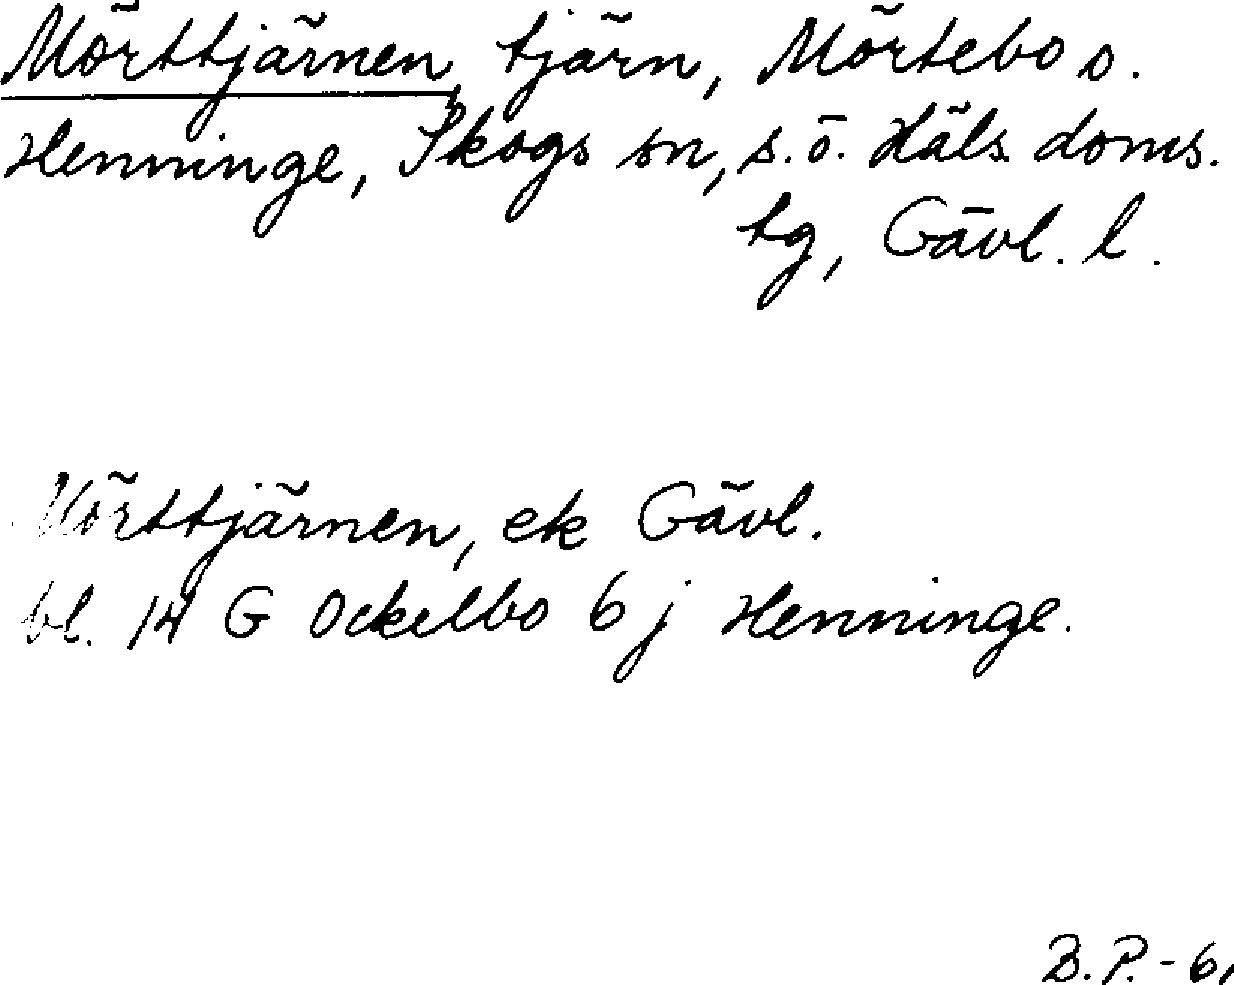 Mörttjärnen, tjärn, Mörtebo o.
Henninge, Skogs sn, s.ö. Häls. doms.
tg, Gävl. l.
Mörttjärnen, ek Gävl.
bl. 14 G Ockelbo 6 j Henninge.
B.P. -61